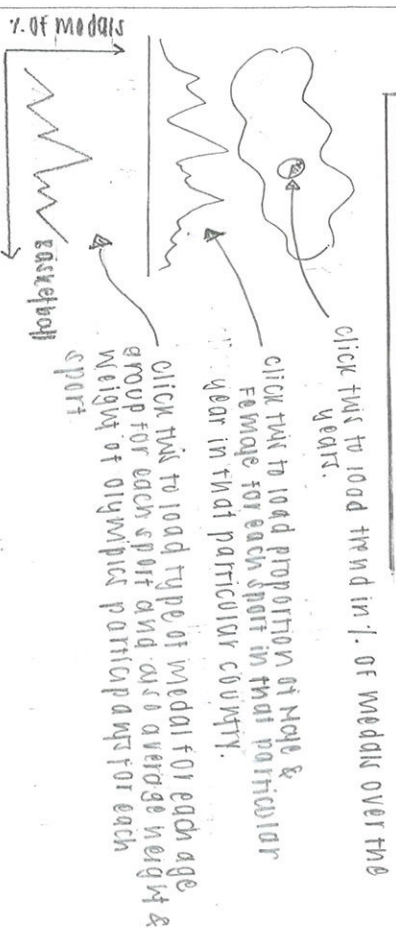 click this to load trend in %. of medals over the
years.
click this to load proportion of Male &
Female for each sport in that particular
year in that particular country.
click this to load type of medal for each age
group for each sport and also average height &
weight of olympics participants for each
sport
%. of medals
Basketball